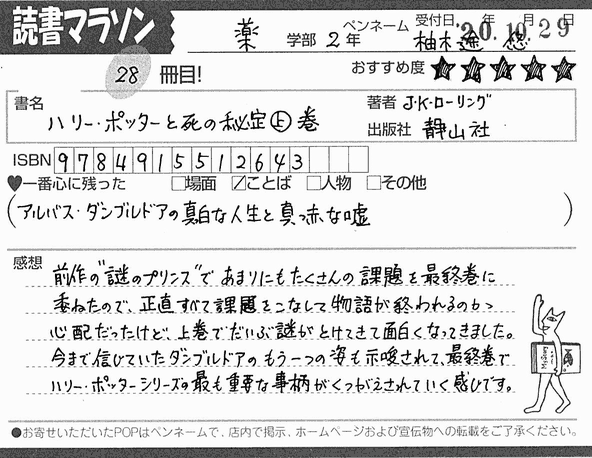 読書マラソン
薬 学部 2年
ペンネーム 柚木
受付日 '20.年10.月29日
28 冊目!
おすすめ度 ★★★★★
書名
ハリー・ポッターと死の秘宝 上 巻
著者 J・K・ローリング
出版社 静山社
ISBN 9784915512643
♥一番心に残った □場面 ☑ことば □人物 □その他
(アルバス・ダンブルドアの真白な人生と真っ赤な嘘)
感想
前作の"謎のプリンス"であまりにもたくさんの課題を最終巻に
委ねたので、正直すべて課題をこなして物語が終われるのかっ
心配だったけど、上巻でだいぶ謎がとけてきて面白くなってきました。
今まで信じていたダンブルドアのもう一つの姿も示唆されて、最終巻で
ハリー・ポッターシリーズの最も重要な事柄がくつがえされていく感じです。
●お寄せいただいたPOPはペンネームで、店内で掲示、ホームページおよび宣伝物への転載をご了承ください。